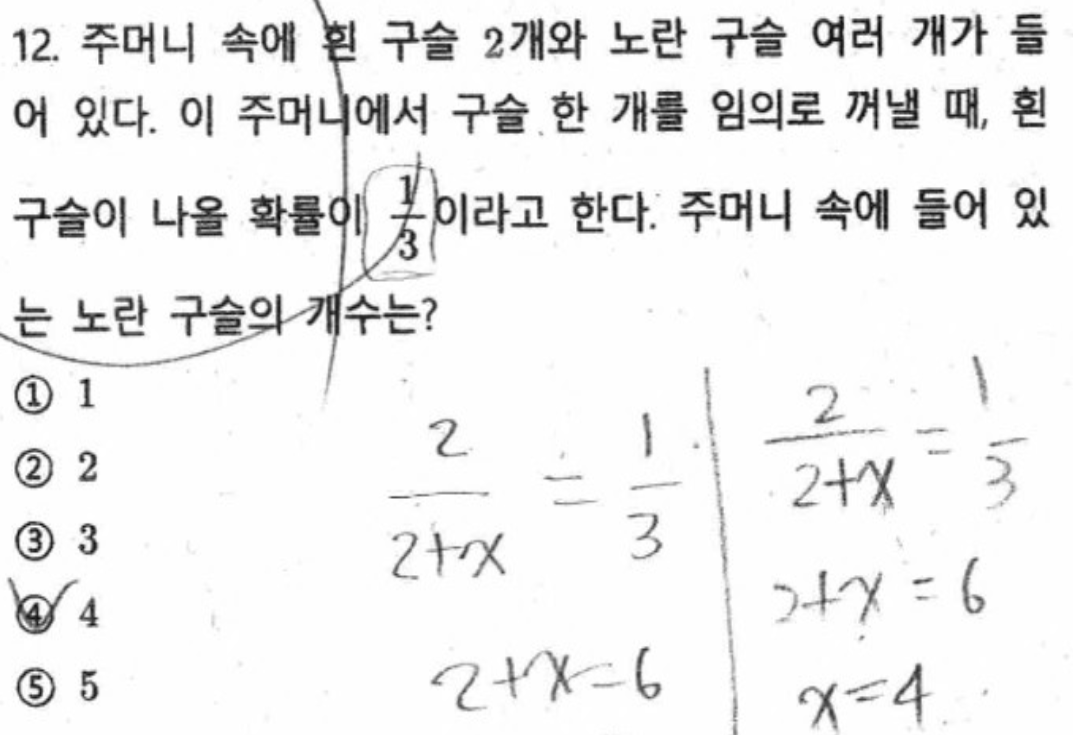 12. 주머니 속에 흰 구슬 2개와 노란 구슬 여러 개가 들
어 있다. 이 주머니에서 구슬 한 개를 임의로 꺼낼 때, 흰
구슬이 나올 확률이 1/3이라고 한다. 주머니 속에 들어 있
는 노란 구슬의 개수는?
① 1
② 2
③ 3
④ 4
⑤ 5
2/(2+x) = 1/3
2+x=6
2/(2+x) = 1/3
2+x=6
x=4